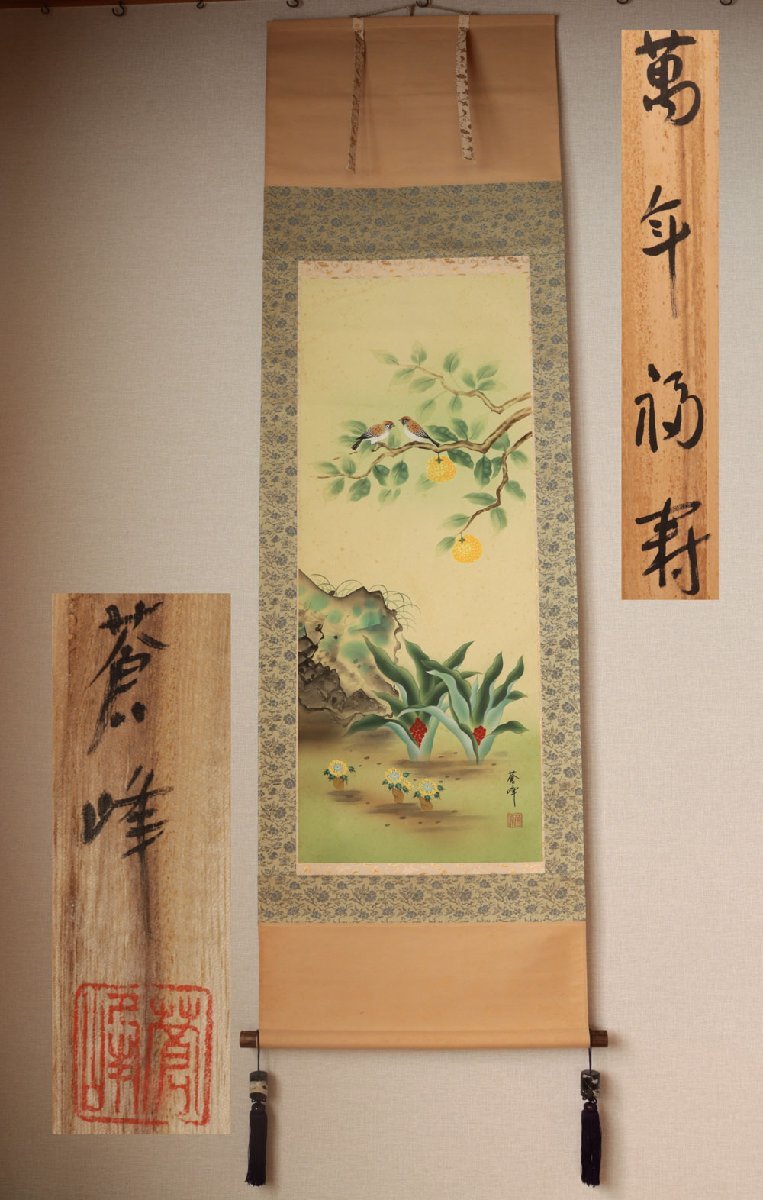 萬年福寿
蒼峰
蒼峰
蒼峰